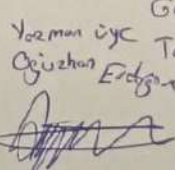 G
Yazman üye T
Oğuzhan Erdoğan